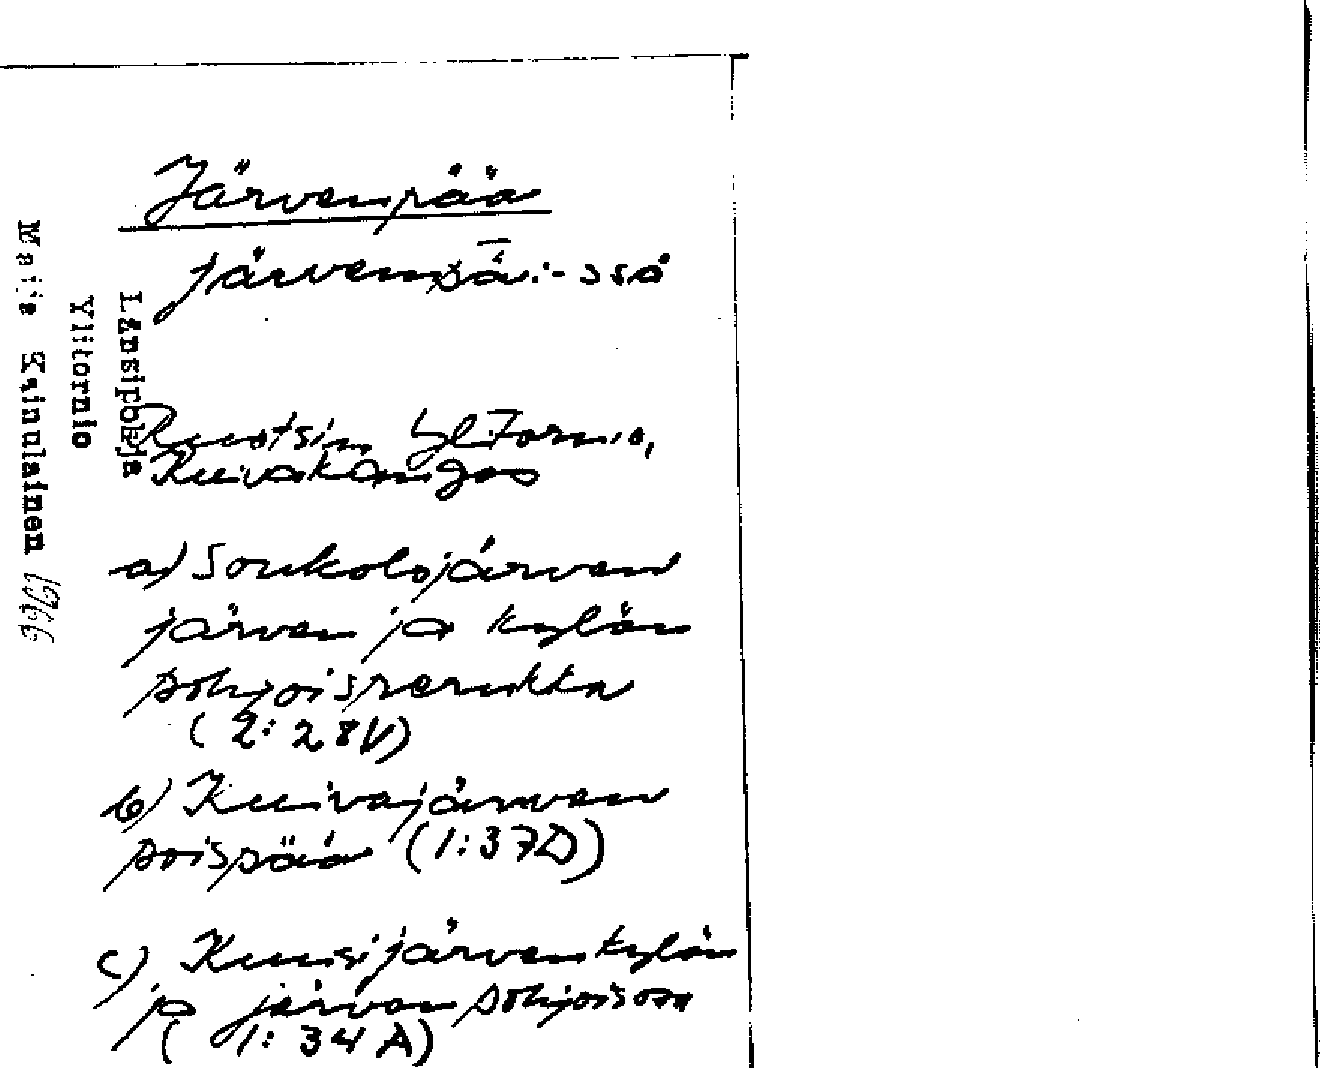 Järvenpää
järvempǟ:-ssä
Länsipohja
Ylitornio
Maija Kainulainen 1966
Ruotsin Ylitornio,
Kuivakangas
a) Soukolojärven
järven ja kylän
pohjoisperukka
(2: 28V)
b) Kuivajärven
poispää (1:37D)
c) Kuusijärven kylän
ja järven pohjoisosa
(1: 34 A)